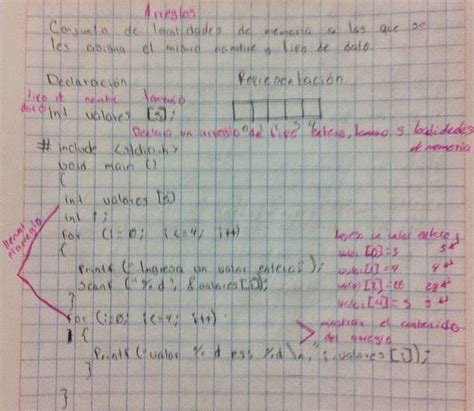 Arreglos
Conjunto de localidades de memoria a las que se
les asigna el mismo nombre y tipo de dato
Declaración Representación
tipo de dato nombre tamaño
int valores [5];
Declara un arreglo del tipo entero, tamaño 5 localidades de memoria
# include <stdio.h>
void main ()
{
int valores [5]
int i;
for (i=0; i<=4; i++)
{
printf ("Ingresa un valor entero");
scanf ("%d", &valores[i]);
}
for (i=0; i<=4; i++)
{
printf ("valor %d es: %d \n", i, valores [i]);
}
}
llenar el arreglo
Ingresa un valor entero
valor [0]=5 5
valor [1]=4 4
valor [2]=28 28
mostrar el contenido
del arreglo